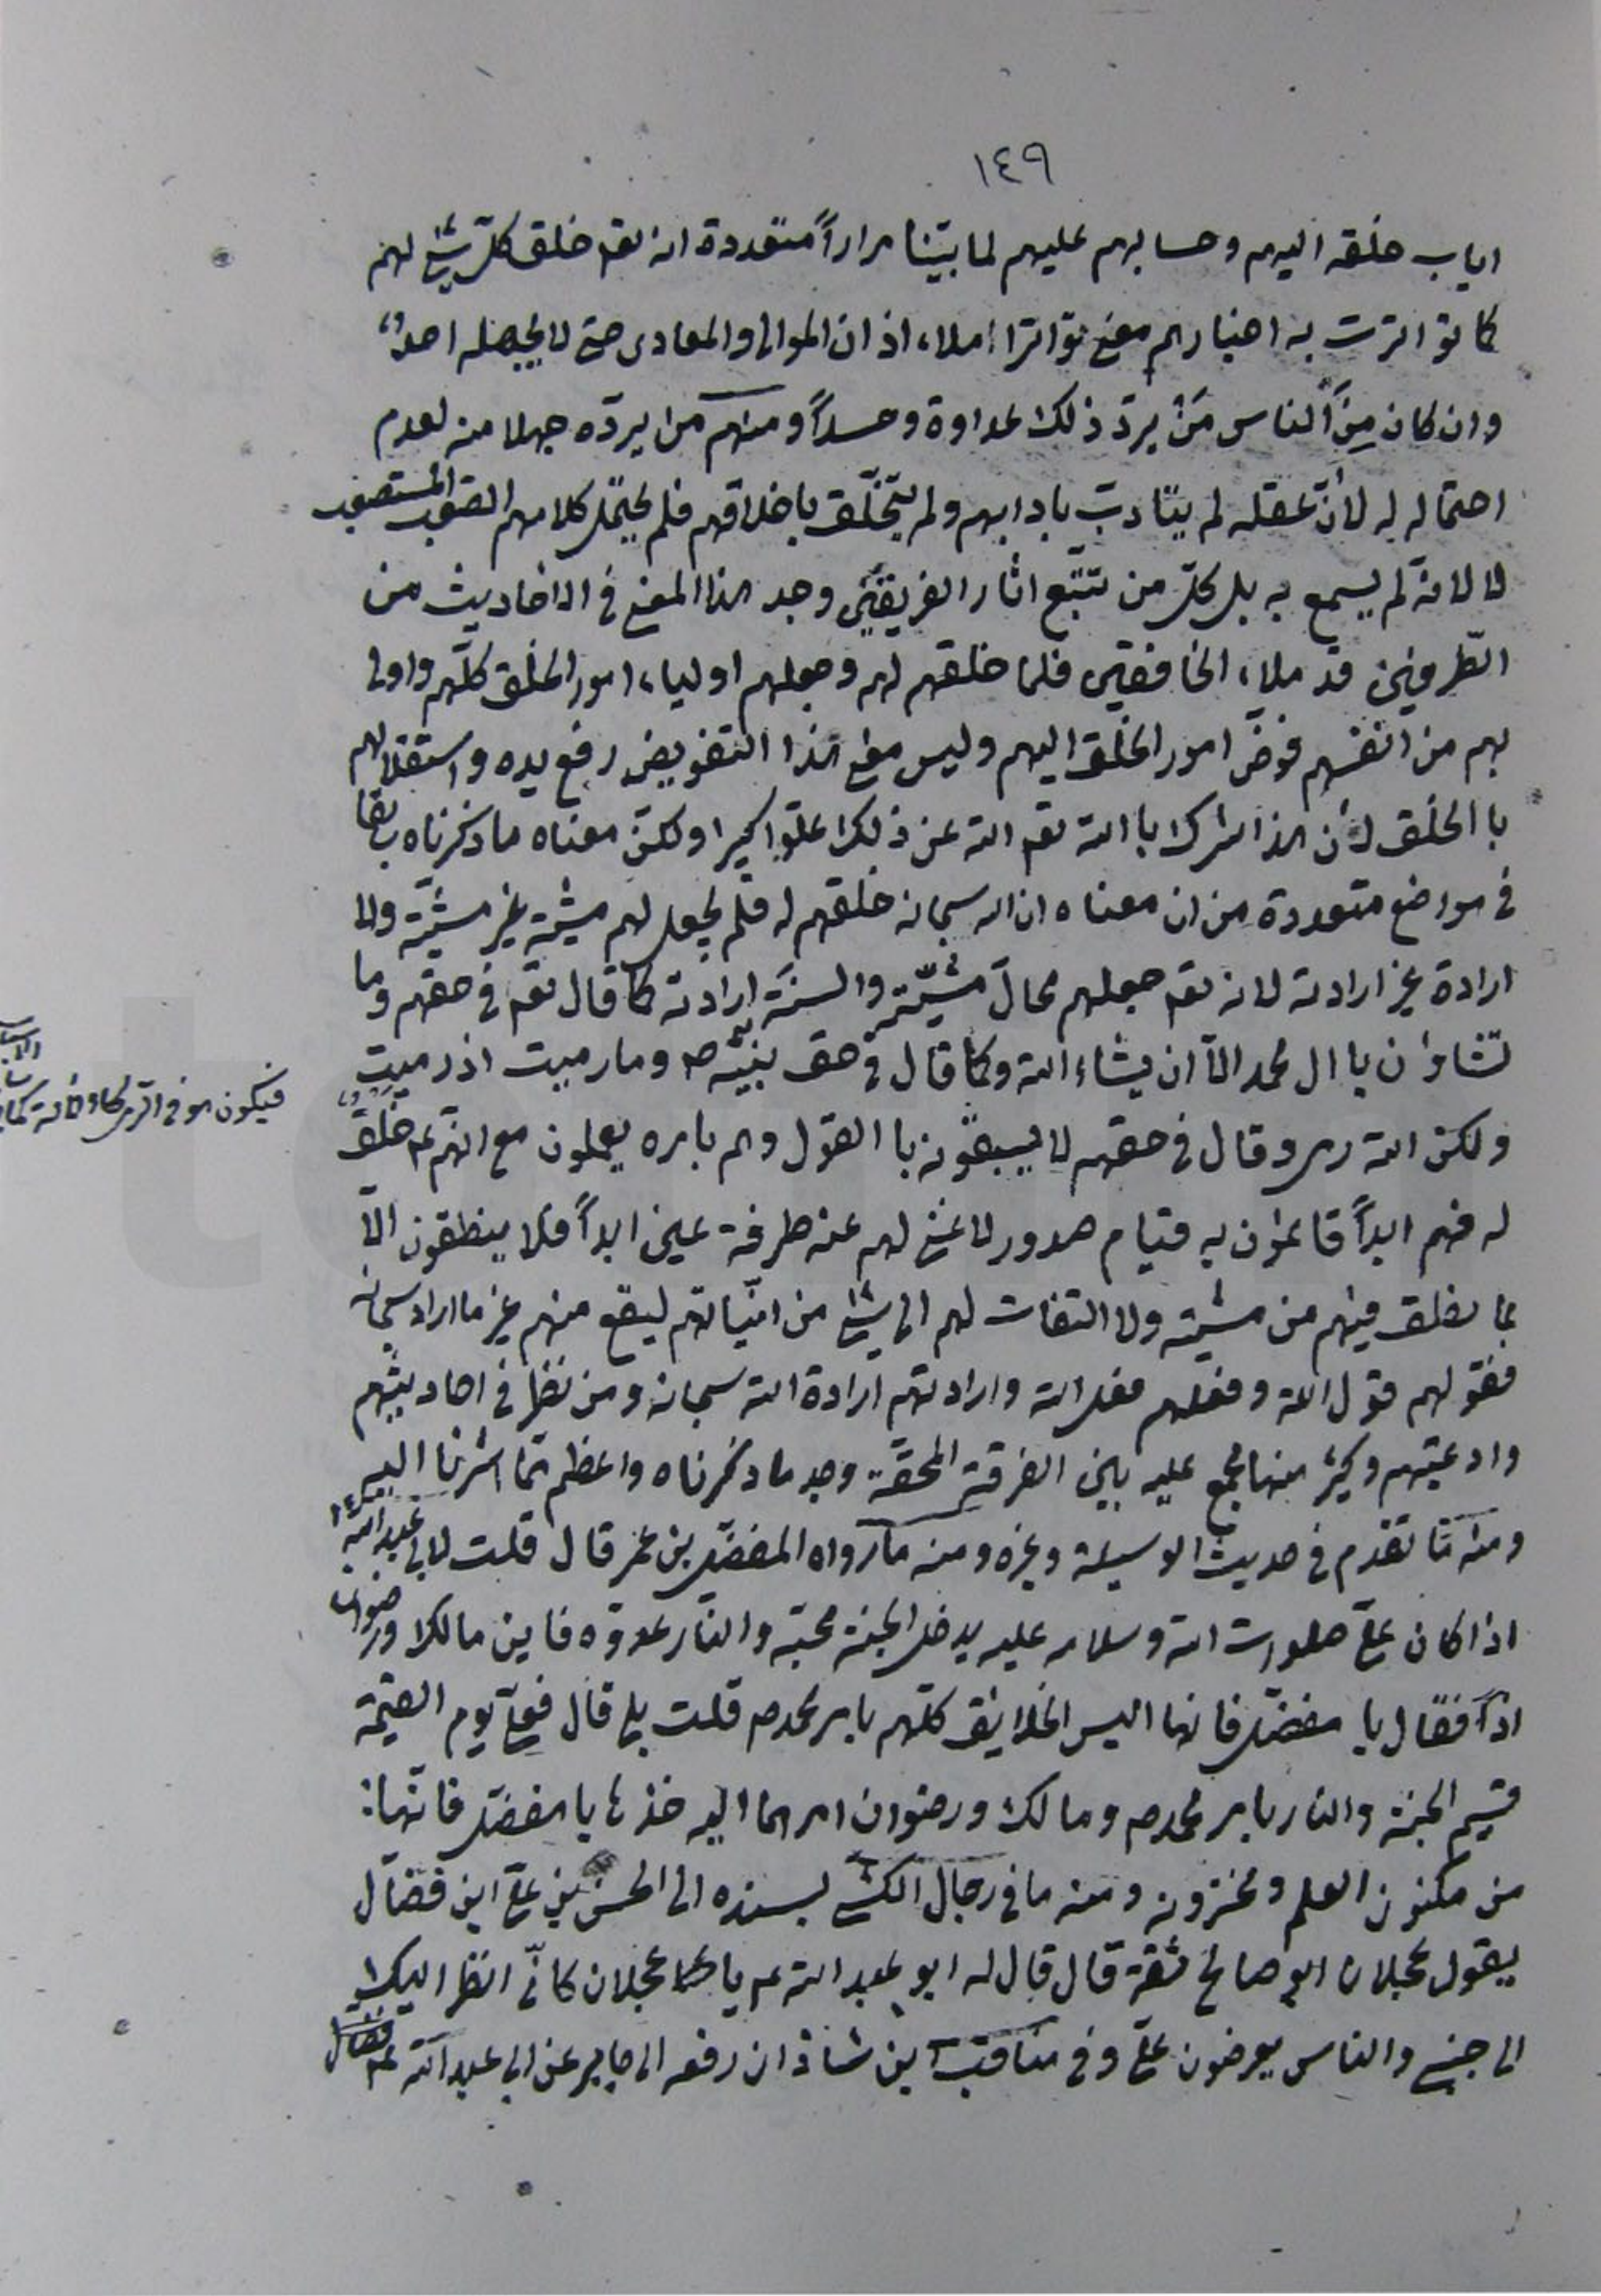 ١٤٩
اياب خلقه اليهم وحسابهم عليهم لما بيّنا مراراً متعددة انه تعم خلق كلّ شئ لهم
كما تواترت به اخبارهم معنى تواترا املاء اذان الموالى والمعادى حتى لا يجهله احدٌ
وان كان مِنَ الناس مَنْ يردّ ذلك عداوة وحسداً ومنهم من يردّه جهلا منه لعدم
احتماله له لأنّ عقله لم يتادبّ بادابهم ولم يتخلّق باخلاقهم فلم يحتمل كلامهم الصعب المستصعب
لا لانه لم يسمع به بل كلّ من تتبّع اثار الفريقين وجد هذا المعنى فى الاخاديث من
الطّرفين قد ملاء الخافقين فلما خلقهم لهم وجعلهم اولياء امور الخلق كلّهم واولى
بهم من انفسهم فوضّ امور الخلق اليهم وليس معنى هذا التفويض رفع يده واستقلالهم
با الخلق لأن هذا شرك باالله تعم الله عن ذلك علوّا كبيرا ولكنّ معناه ما ذكرناه سابقا
فى مواضع متعددة من ان معناه ان الله سبحانه خلقهم له فلم يجعل لهم مشيّة غير مشيّته ولا
ارادة غير ارادته لانه تعم جعلهم محالّ مشيّته والسنَة ارادته كما قال تعم فى حقهم وما
تشاؤن يا ال محمد الاّ ان يشاء الله وكما قال فى حق نبيّه ص وما رميت اذ رميت
ولكن الله رمى وقال فى حقهم لا يسبقونه با القول وهم بامره يعملون مع انهم عم خلقٌ
فيكون هو فى اثرى
له فهم ابداً قائمون به قيام صدور لا غنى لهم عنه طرفة عين ابداً فلا ينطقون الاّ
بما يخلق فيهم من مشيته ولا التفات لهم الى شئ من انيّاتهم ليقع منهم غير ما اراد سبحانه
فقولهم قول الله وفعلهم فعل الله وارادتهم ارادة الله سبحانه ومن نظر فى احاديثهم
وادعيتهم وكثير منها مجمع عليه بين الفرقة المحقّة وجد ما ذكرناه واعظم ممّا اشرنا اليه
ومنه ما تقدم فى حديث الوسيلة وغيره ومنه ما رواه المفضّل بن عمر قال قلت لابى عبد الله
اذا كان علىّ صلوات الله وسلامه عليه يدخل الجنة محبّه والنّار عدوّه فاين مالك ورضوان
اذاً فقال يا مفضّل فانها اليس الخلايق كلّهم بامر محمد ص قلت بلى قال فعلىّ يوم القيمة
قسيم الجنة والنار بامر محمد ص ومالك ورضوان امرهما اليه خذها يا مفضّل فانّها:
من مكنون العلم ومخزونه ومنه ما فى رجال الكشّى بسنده الى الحسن بن علىّ ابن فضّال
يقول عجلان ابو صالح ثقة قال قال له ابو عبد الله عم يا عجلان كانّى انظر اليك
الى جنبى والناس يعرضون علىّ وفى مناقب ابن شاذان رفعه الى جابر عن ابى عبد الله عم فقال